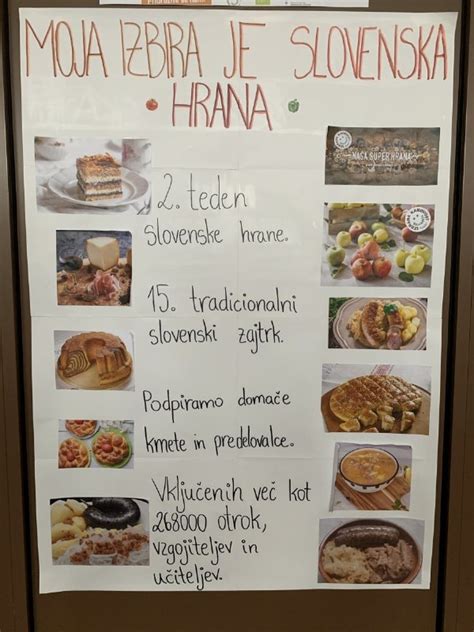 MOJA IZBIRA JE SLOVENSKA
HRANA
NAŠA SUPER HRANA
2. teden
slovenske hrane.
15. tradicionalni
slovenski zajtrk.
Podpiramo domače
kmete in predelovalce.
Vključenih več kot
268000 otrok,
vzgojiteljev in
učiteljev.